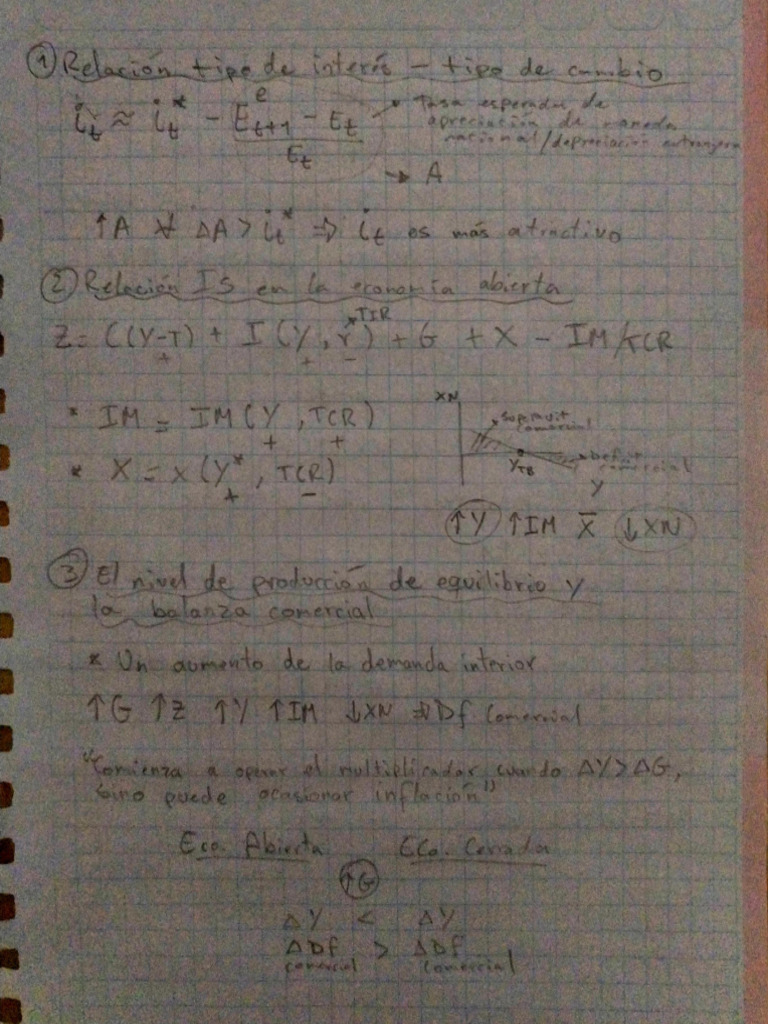 ① Relación tipo de interés - tipo de cambio
i_t ≈ i_t^* - (E^e_{t+1} - E_t) / E_t → Tasa esperada de
apreciación de moneda
nacional/depreciación extranjera
→ A
↑A ∀ ΔA > i_t^* ⇒ i_t es más atractivo
② Relación IS en la economía abierta
Z = C(Y-T) + I(Y, r) + G + X - IM/TCR
TIR
+ + -
* IM = IM(Y, TCR)
+ +
* X = X(Y*, TCR)
+ -
XN
superavit
comercial
deficit
comercial
Y_TB
Y
↑Y ↑IM X̅ ↓XN
③ El nivel de producción de equilibrio y
la balanza comercial
* Un aumento de la demanda interior
↑G ↑Z ↑Y ↑IM ↓XN ⇒ Df comercial
"Comienza a operar el multiplicador cuando ΔY > ΔG,
sino puede ocasionar inflación"
Eco. Abierta Eco. Cerrada
↑G
ΔY < ΔY
ΔDf > ΔDf
comercial comercial